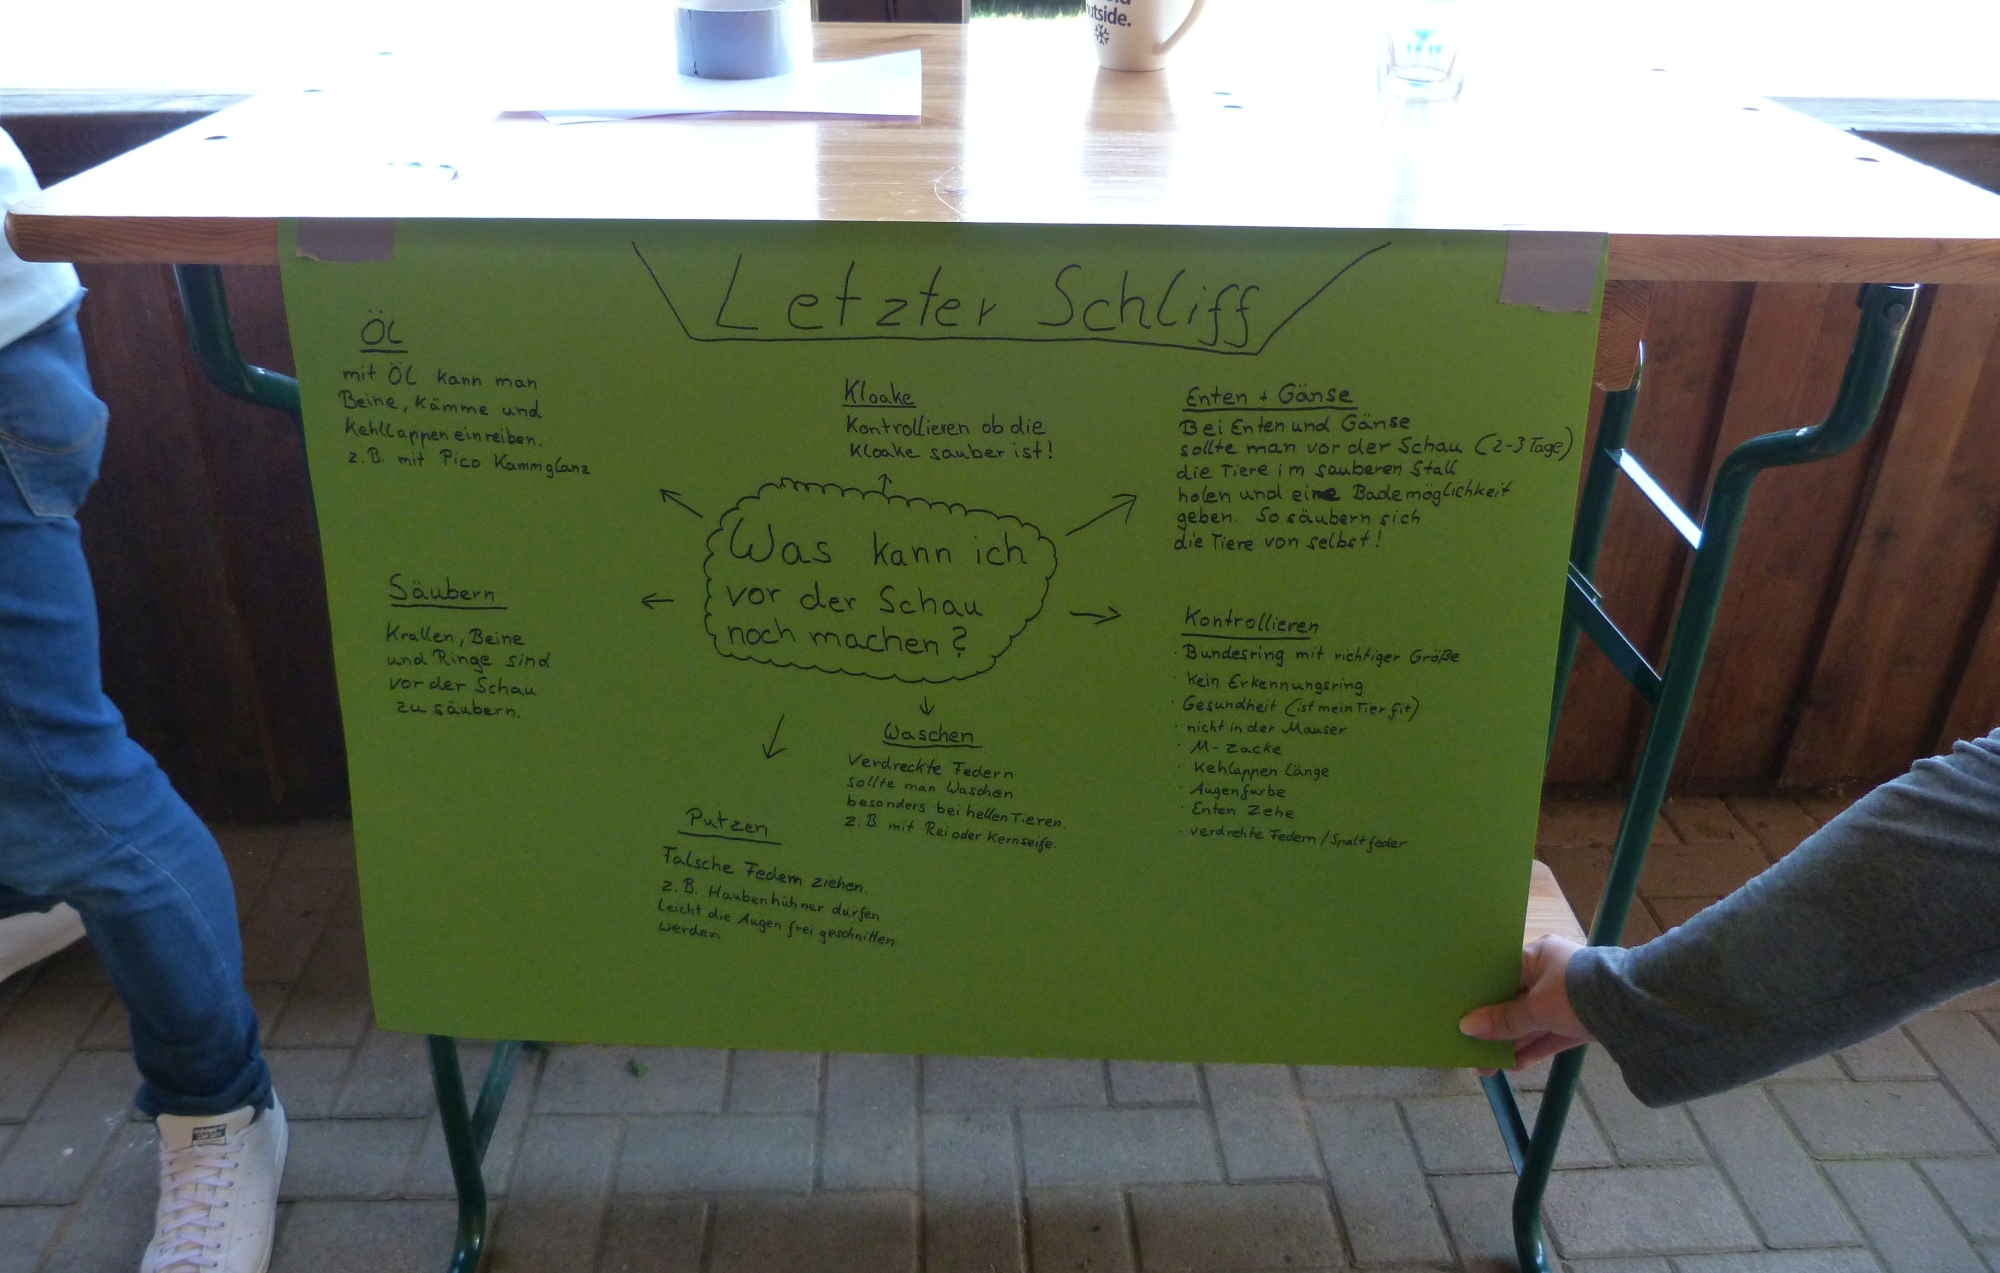 utside.
Letzter Schliff
Öl
mit Öl kann man
Beine, Kämme und
Kehllappen einreiben.
z.B. mit Pico Kammglanz
Kloake
Kontrollieren ob die
Kloake sauber ist!
Enten + Gänse
Bei Enten und Gänse
sollte man vor der Schau (2-3 Tage)
die Tiere im sauberen Stall
holen und eine Bademöglichkeit
geben. So säubern sich
die Tiere von selbst!
Was kann ich
vor der Schau
noch machen?
Säubern
Krallen, Beine
und Ringe sind
vor der Schau
zu säubern.
Kontrollieren
· Bundesring mit richtiger Größe
· kein Erkennungsring
· Gesundheit (ist mein Tier fit)
· nicht in der Mauser
· M-Zacke
· Kehlappen Länge
· Augenfarbe
· Enten Zehe
· verdrehte Federn / Spaltfeder
Waschen
Verdreckte Federn
sollte man Waschen
besonders bei hellen Tieren.
z.B. mit Rei oder Kernseife.
Putzen
Falsche Federn ziehen.
z.B. Haubenhühner durfen
leicht die Augen frei geschnitten
werden